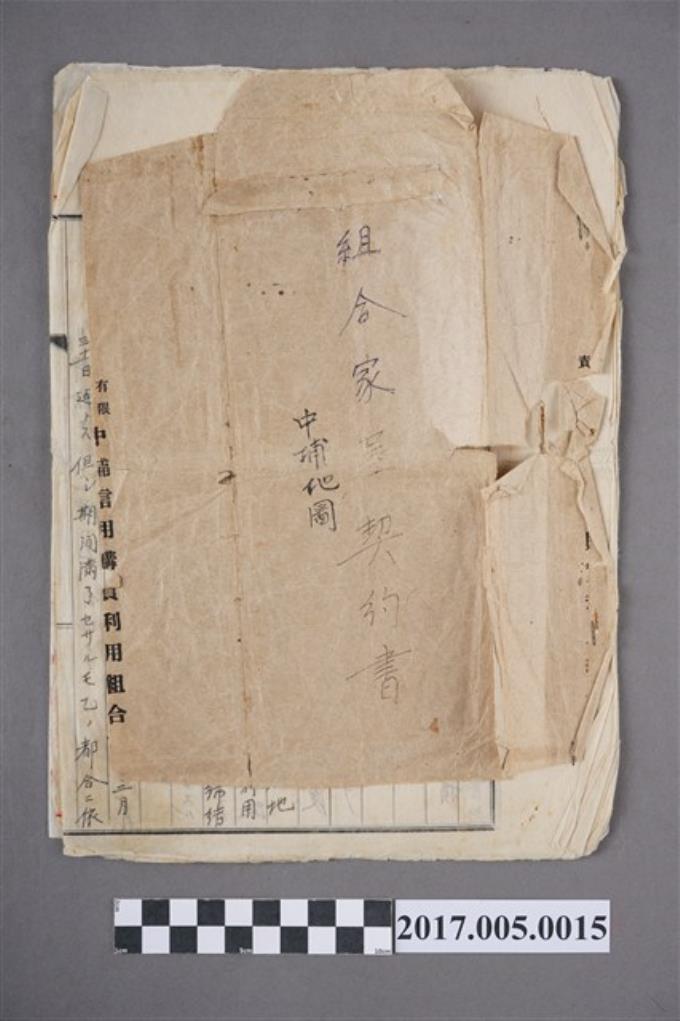 組合家屋契約書
中埔地圖
賣
有限中埔信用購買利用組合
三月
地
利用
締結
三十日迄トス但シ期間満了セサルモ乙ノ都合ニ依
2017.005.0015
5cm
10cm